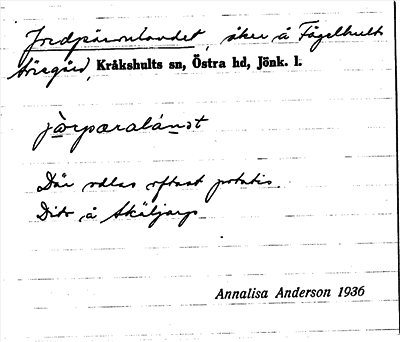 Jordpäronlandet, åker å Fågelhult
Storegård, Kråkshults sn, Östra hd, Jönk. l.
Där odlas oftast potatis.
Dito å Skäljarp
Annalisa Anderson 1936